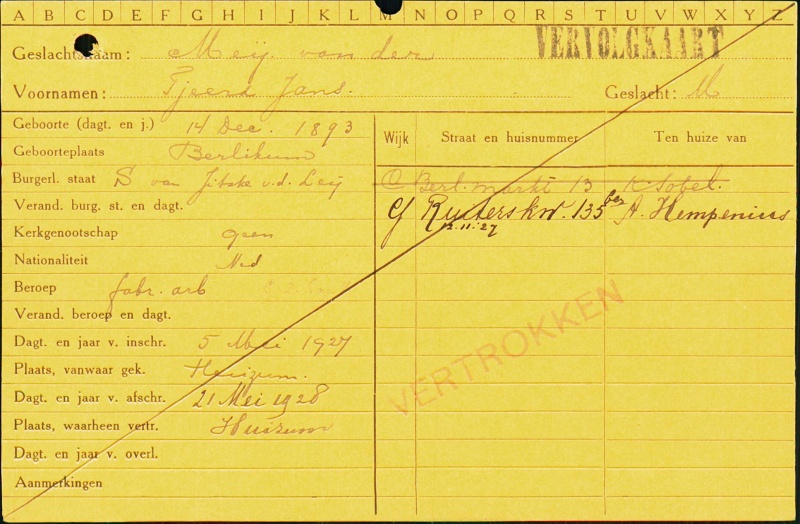 A B C D E F G H I J K L M N O P Q R S T U V W X Y Z
VERVOLGKAART
Geslachtsnaam: Meij van der
Voornamen: Tjeerd Jans. Geslacht: M
Geboorte (dagt. en j.) 14 Dec. 1893
Geboorteplaats Berlikum
Burgerl. staat S van Jitske v.d. Leij
Verand. burg. st. en dagt.
Kerkgenootschap geen
Nationaliteit Ned
Beroep fabr. arb
Verand. beroep en dagt.
Dagt. en jaar v. inschr. 5 Mei 1927
Plaats, vanwaar gek. Huizum.
Dagt. en jaar v. afschr. 21 Mei 1928
Plaats, waarheen vertr. Huizum
Dagt. en jaar v. overl.
Aanmerkingen
Wijk Straat en huisnummer Ten huize van
C Berl. markt 13 K Sobel.
Ruiterskw. 135 A. Hempenius
12.11.'27
VERTROKKEN